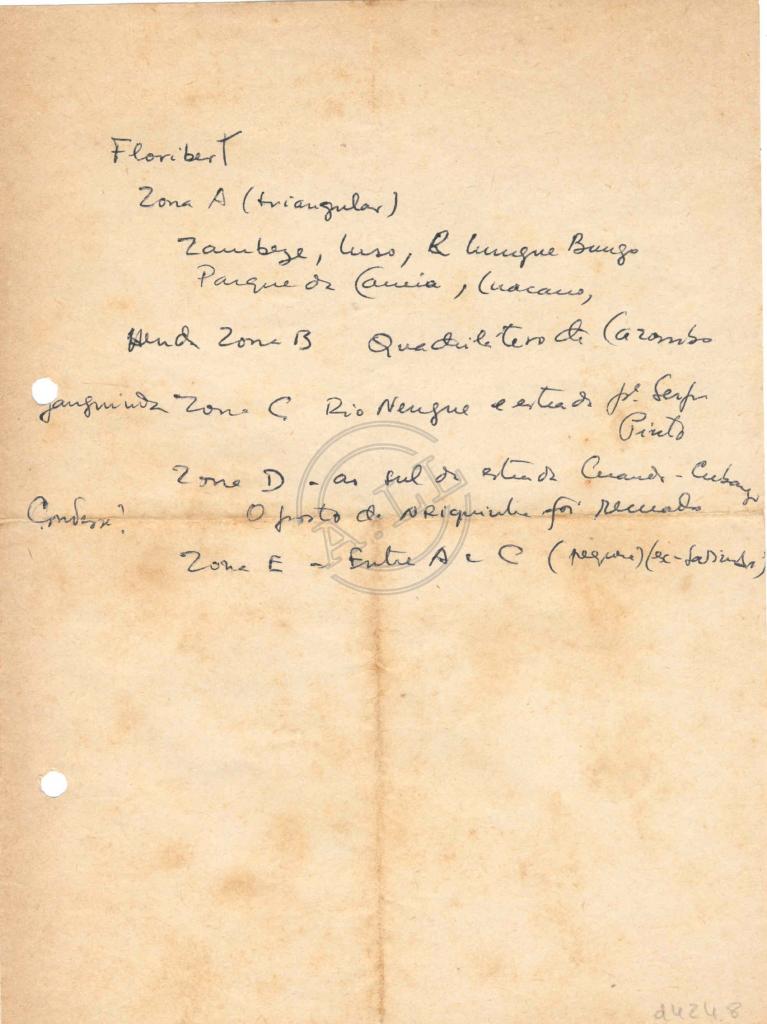 Floribert
Zona A (triangular)
Zambeze, Luso, R Lungue Bungo
Parque da Cameia, Luacano,
Henda Zona B Quadrilatero de Cazombo
Janguinda Zona C Rio Nengue e estrada pª Serpa
Pinto
Zona D - ao sul da estrada Cuando-Cubango
Condesse? O posto de NRiquinha foi
Zona E - Entre A e C (pequena) (ex-Savimbi)
A.LL
d424.8